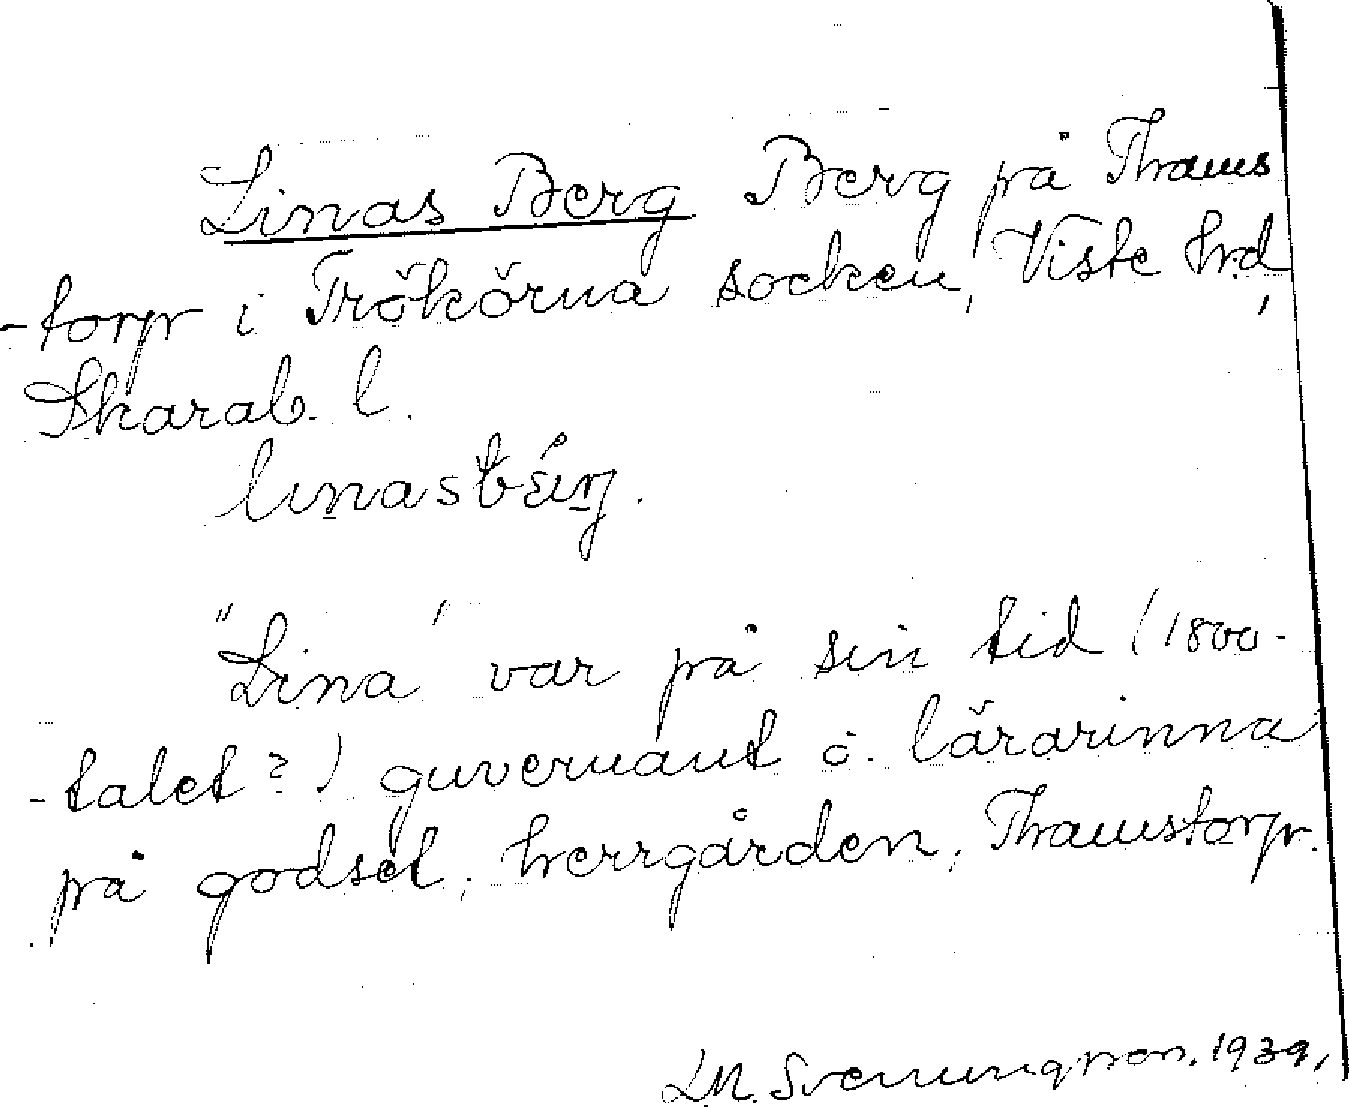 Linas Berg Berg på Thams
-torp i Trökörna socken, Viste hrd,
Skarab. l.
linasbérj.
"Lina" var på sin tid (1800-
-talet?) guvernant o. lärarinna
på godset, herrgården, Thamstorp.
LM. Svenungsson. 1939.